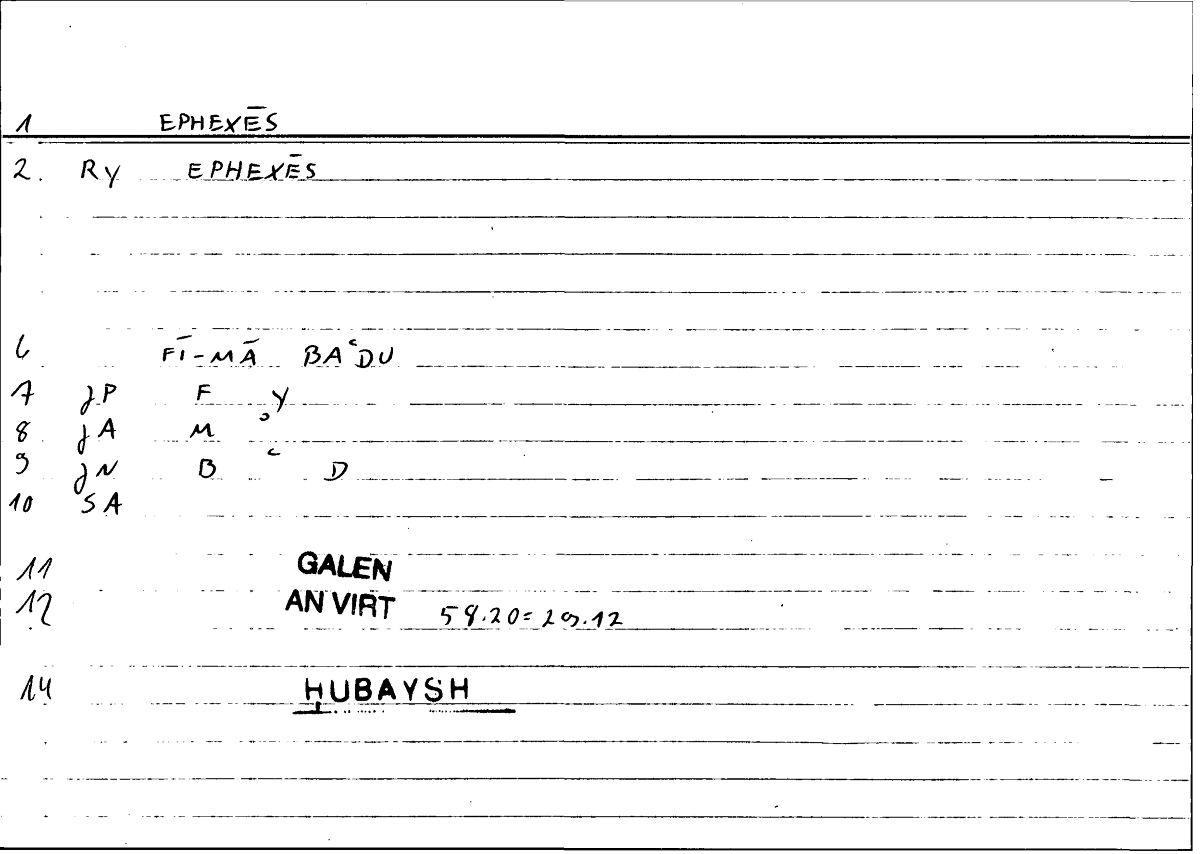 1 EPHEXĒS
2. Ry EPHEXĒS
6 FĪ-MĀ BAʿDU
7 jP F Y
8 jA M
9 jN B ʿ D
10 SA
11 GALEN
12 AN VIRT 58.20=29.12
14 ḤUBAYSH